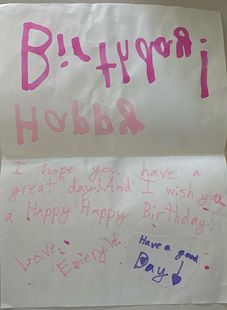 Happy
Birthday!
I hope you have a
great day! And I wish you
a Happy Happy Birthday!
Love,
Emery
Have a good
Day!